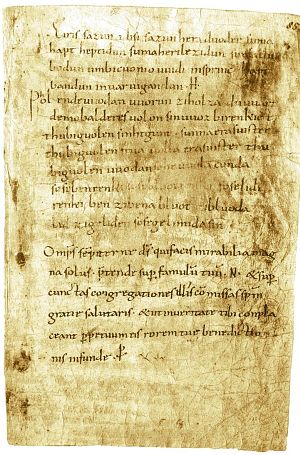 Eiris sazun idisi sazun hera duoder suma
hapt heptidun suma heri lezidun suma clu
bodun umbicuonio uuidi insprinc hapt
bandun inuar uigandun · H ·
Phol endeuuodan uuorun ziholza du uuart
demobalderes uolon sinuuoz birenkict
thubiguolen sinhtgunt · sunnaerasuister
thubiguolen friia uolla erasuister thu
biguolen uuodan sohe uuola conda
sosebenrenki sose bluotrenki soselidi
renki ben zibena bluot zibluoda
lid zigeliden sosegelimida sin
Omps sempiterne ds quifacis mirabilia mag
na solus · ptende sup famulu tuu · N · & sup
cunctas congregationes illis comissas spm
gratie salutaris · & ut inueritate tibi compla
ceant ppetuum eis rorem tue benedictio
nis infunde · p